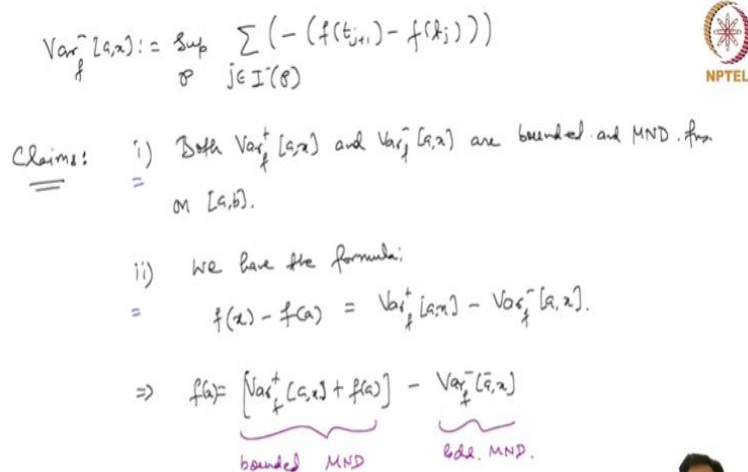 Var⁻_f [a,x] := Sup_℘ ∑_{j∈I⁻(℘)} (-(f(t_{j+1}) - f(t_j)))
NPTEL
Claims: i) Both Var⁺_f [a,x] and Var⁻_f [a,x] are bounded and MND. fns.
on [a,b].
ii) We have the formula:
f(x) - f(a) = Var⁺_f [a,x] - Var⁻_f [a,x].
⇒ f(x) = [Var⁺_f [a,x] + f(a)] - Var⁻_f [a,x]
bounded MND bdd. MND.